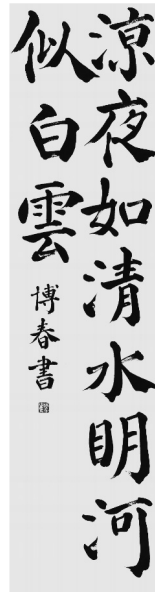 涼夜如清水明河
似白雲
博春書